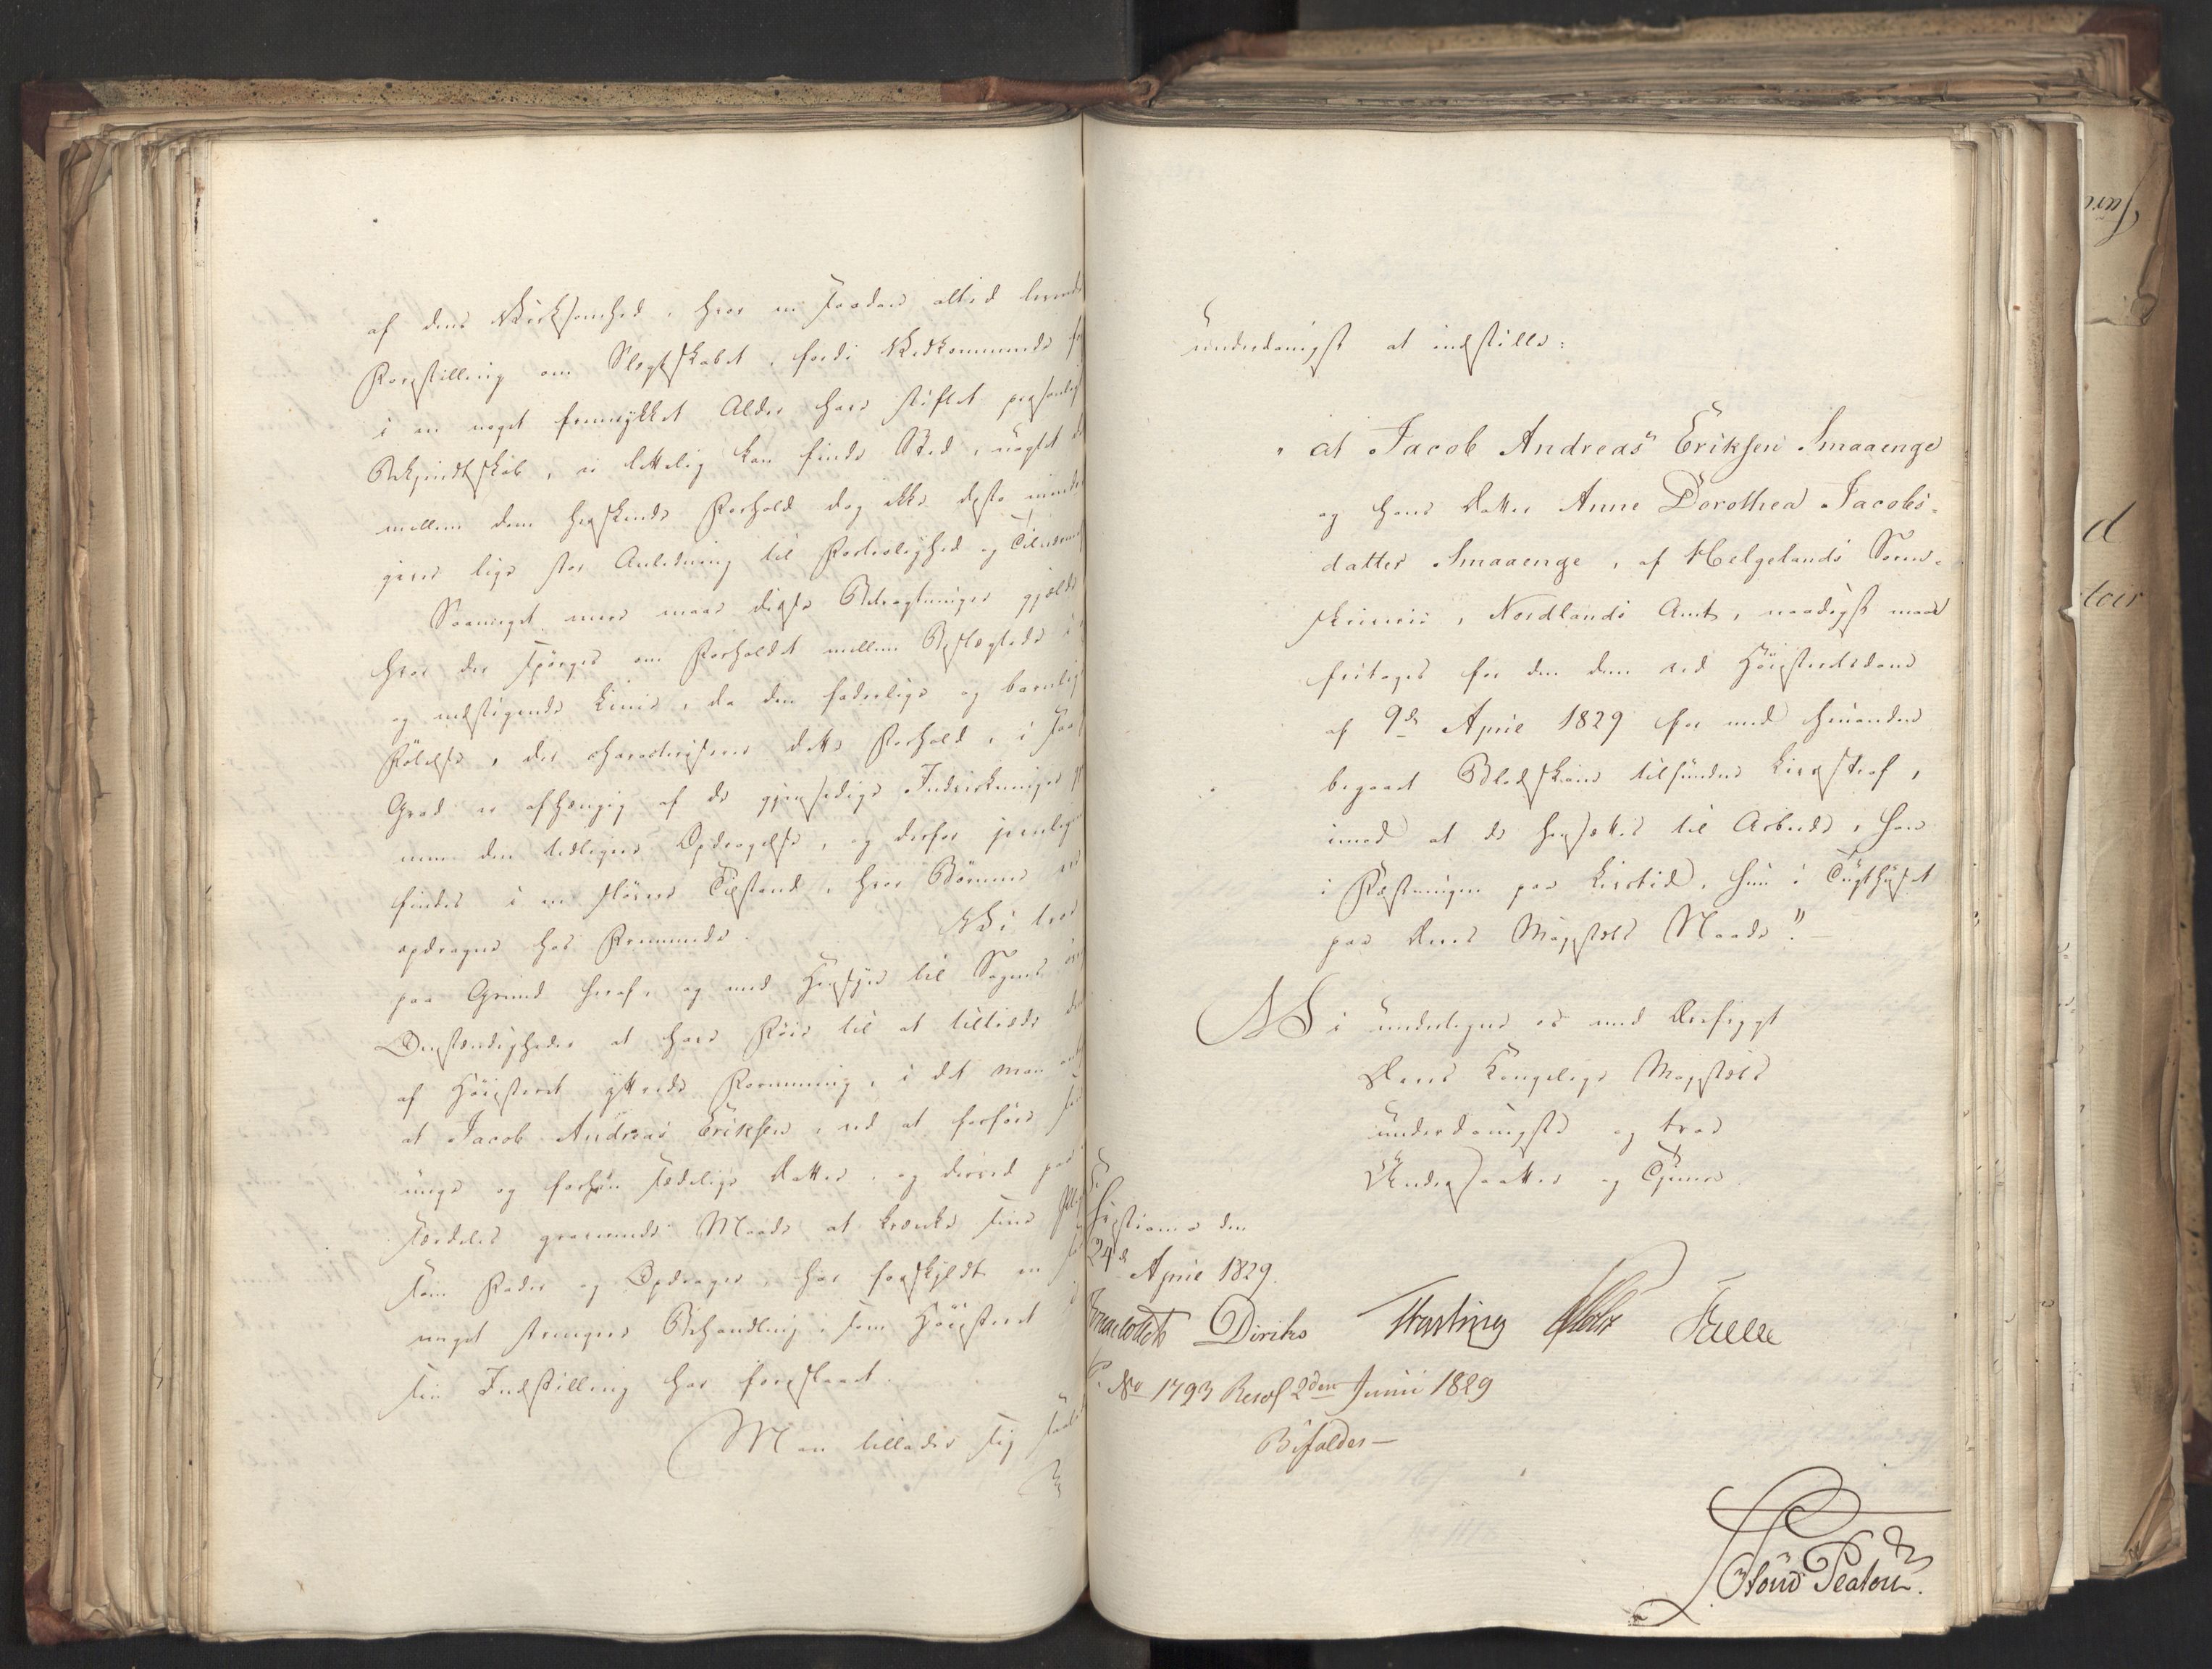 af dens Virksomhed, hvor en saadan altid levende
Forestilling om Slegtskabet, fordi Vedkommende først
i en noget fremrykket Alder have stiftet personligt
Bekjendtskab, ei lettelig kan finde Sted, uagtet det
mellem dem herskende Forhold dog ikke desto mindre
giver lige stor Anledning til Fortrolighed og Tilnærmelse
Saameget mere maae disse Betragtninger gjælde
hvor der spørges om Forholdet mellem Beslægtede i op
og nedstigende Linie, da den faderlige og barnlige
Følelse, der characteriserer dette Forhold, i stor
Grad er afhængig af de gjensidige Indvirkninger
den tidligere Opdragelse, og derfor jevnligen
findes i en sløvere Tilstand, hvor Børnene ere
opdragne hos Fremmede. Vi troe
paa Grund heraf, og med Hensyn til Sagens øvrige
Omstændigheder at have Føie til at tiltræde den
af Høiesteret yttrede Formening, i det man
at Jacob Andreas Eriksen, ved at forføre sin
unge og forhen sædelige Datter, og derved paa
særdeles graverende Maade at krænke sine Pligter
som Fader og Opdrager, har forskyldt en
meget strengere Behandling, som Høiesteret i
sin Indstilling har foreslaaet.
Man tillader sig
underdanigst at indstille:
"at Jacob Andreas Eriksen Smaaenge
og hans Datter Anne Dorothea Jacobs-
datter Smaaenge, af Helgelands Soren-
skriverie, Nordlands Amt, naadigst maae
fritages for den dem ved Høiesteretsdom
af 9de April 1829 for med hinanden
begaaet Blodskam tilfundne Livsstraf,
imod at de hensættes til Arbeide, han
i Fæstningen paa Livstid, hun i Tugthuset
paa Deres Majestæts Naade". —
Vi undertegne os med Ærefrygt
Deres Kongelige Majestæts
underdanigste og troe
Undersaatter og Tjenere.
Christiania den
24de April 1829.
Diriks Fasting Holst Falsen
P. No 1793 Resol 2den Junii 1829
Bifaldes —